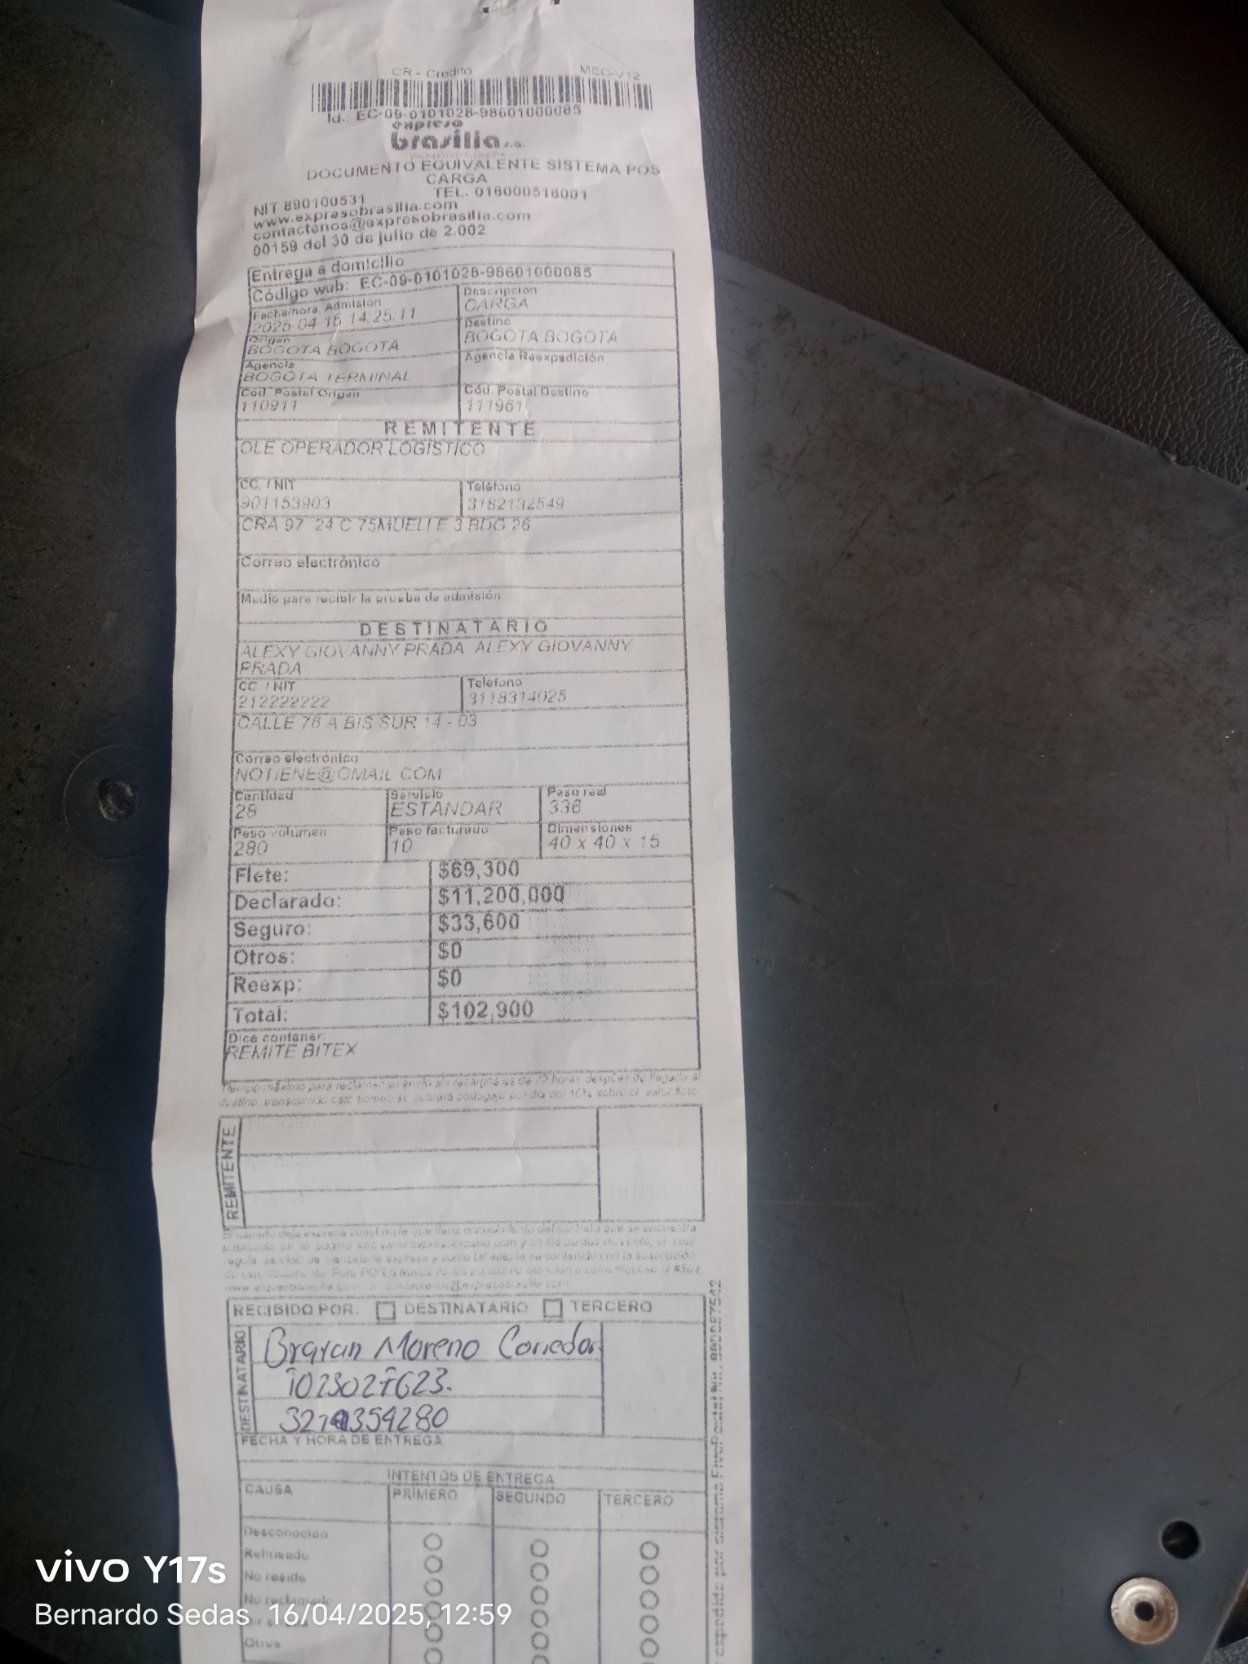 CR - Credito MEC-V12
Id.: EC-09-0101028-98601000085
expreso
brasilia s.a.
DOCUMENTO EQUIVALENTE SISTEMA POS
CARGA
NIT 890100531 TEL. 018000518001
www.expresobrasilia.com
contactenos@expresobrasilia.com
00159 del 30 de julio de 2.002
Entrega a domicilio
Código web: EC-09-0101028-98601000085
Fecha/hora Admision Descripción
2025-04-15 14:25:11 CARGA
Origen Destino
BOGOTA BOGOTA BOGOTA BOGOTA
Agencia Agencia Reexpedición
BOGOTA TERMINAL
Cód. Postal Origen Cód. Postal Destino
110911 111961
REMITENTE
OLE OPERADOR LOGISTICO
CC. / NIT Teléfono
901153903 3182132549
CRA 97 24 C 75MUELLE 3 BDG 26
Correo electrónico
Medio para recibir la prueba de admisión
DESTINATARIO
ALEXY GIOVANNY PRADA ALEXY GIOVANNY
PRADA
CC. / NIT Teléfono
212222222 3118314025
CALLE 76 A BIS SUR 14 - 03
Correo electrónico
NOTIENE@GMAIL.COM
Cantidad Servicio Peso real
28 ESTANDAR 336
Peso volumen Peso facturado Dimensiones
280 10 40 x 40 x 15
Flete: $69,300
Declarado: $11,200,000
Seguro: $33,600
Otros: $0
Reexp: $0
Total: $102,900
Dice contener:
REMITE BITEX
Tiempo máximo para reclamar su envío sin recargos es de 72 horas después de llegado al
destino, transcurrido este tiempo se cobrara bodegaje por día del 10% sobre el valor flete
REMITENTE
RECIBIDO POR: DESTINATARIO TERCERO
DESTINATARIO
Brayan Moreno Corredor
1023027623.
FECHA Y HORA DE ENTREGA
INTENTOS DE ENTREGA
CAUSA PRIMERO SEGUNDO TERCERO
Desconocido
Rehusado
No reside
No reclamado
Otros
vivo Y17s
Bernardo Sedas 16/04/2025, 12:59